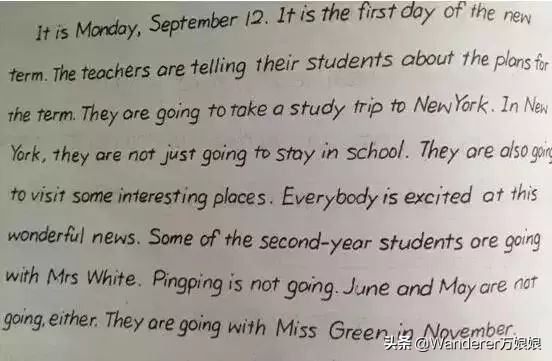 It is Monday, September 12. It is the first day of the new
term. The teachers are telling their students about the plans for
the term. They are going to take a study trip to New York. In New
York, they are not just going to stay in school. They are also going
to visit some interesting places. Everybody is excited at this
wonderful news. Some of the second-year students are going
with Mrs White. Pingping is not going. June and May are not
going, either. They are going with Miss Green in November.
头条 @Wanderer方娘娘